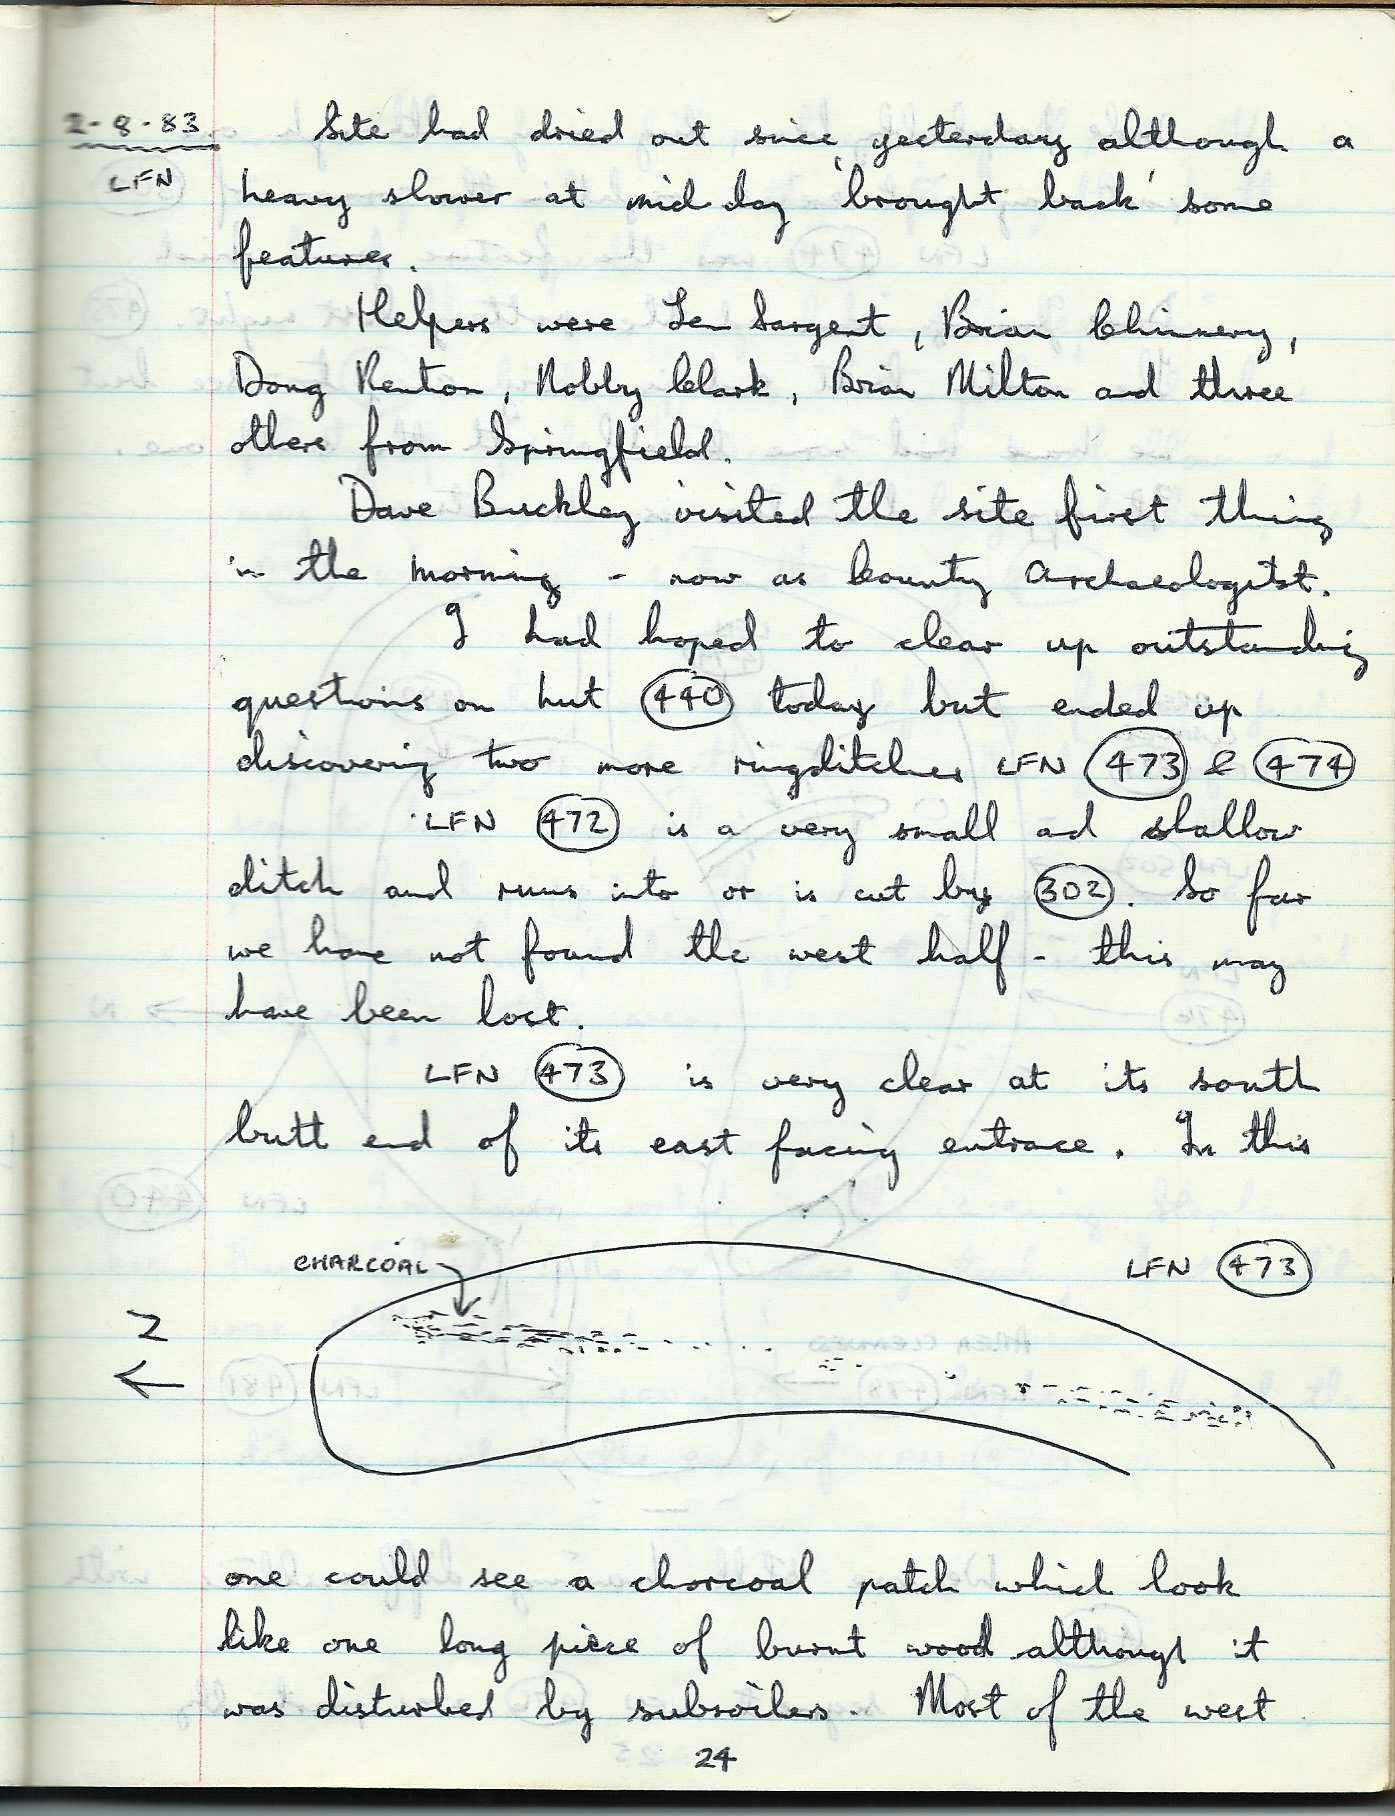 2-8-83. Site had dried out since yesterday although a
LFN heavy shower at mid day 'brought back' some
features.
Helpers were Len Sargent, Brian Chinnery,
Doug Renton, Nobby Clark, Brian Milton and three
others from Springfield.
Dave Buckley visited the site first thing
in the morning - now as County Archaeologist.
I had hoped to clear up outstanding
questions on hut 440 today but ended up
discovering two more ringditches LFN 473 & 474
LFN 472 is a very small ad shallow
ditch and runs into or is cut by 302. So far
we have not found the west half - this may
have been lost.
LFN 473 is very clear at its south
butt end of its east facing entrace. In this
CHARCOAL
LFN 473
N
one could see a charcoal patch which look
like one long piece of burnt wood although it
was disturbed by subsoilers. Most of the west
24